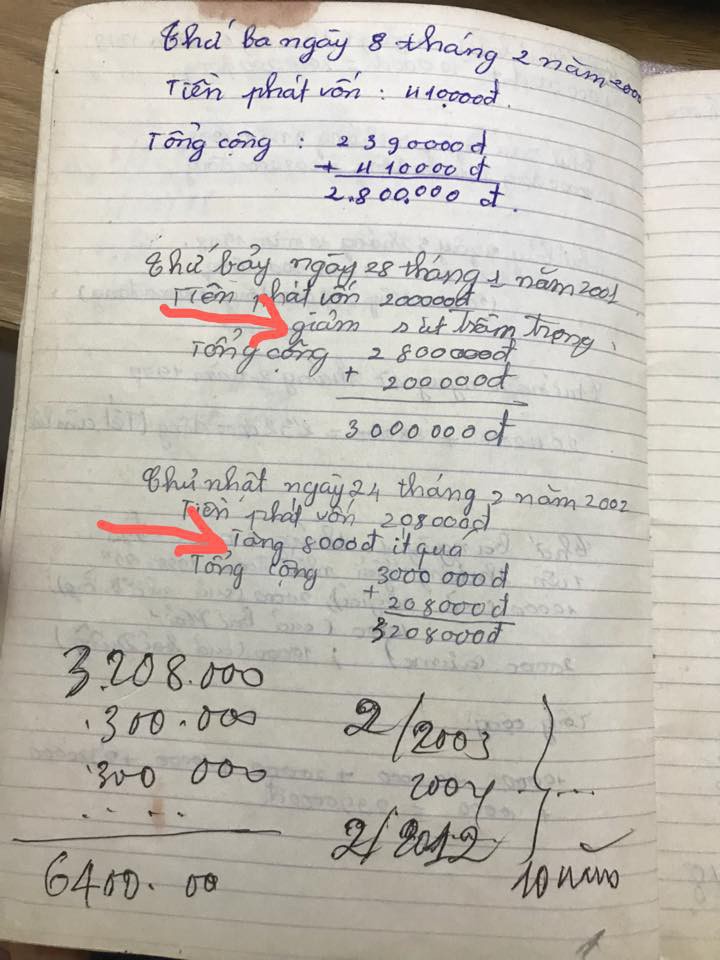 Thứ ba ngày 8 tháng 2 năm 2000
Tiền phát vốn : 410.000đ.
Tổng cộng : 2 390000đ
+ 410000 đ
2.800.000 đ.
Thứ bảy ngày 28 tháng 1 năm 2001
Tiền phát vốn 200000đ
giảm sút trầm trọng.
Tổng cộng 2 800000đ
+ 200000đ
3000000đ
Chủ nhật ngày 24 tháng 2 năm 2002
Tiền phát vốn 208000đ
Tăng 8000đ ít quá
Tổng cộng 3000 000đ
+ 208000đ
3208000đ
3.208.000
.300.000 2/2003
.300 000 2004 ...
..... 2/2012
6400.00 10 năm